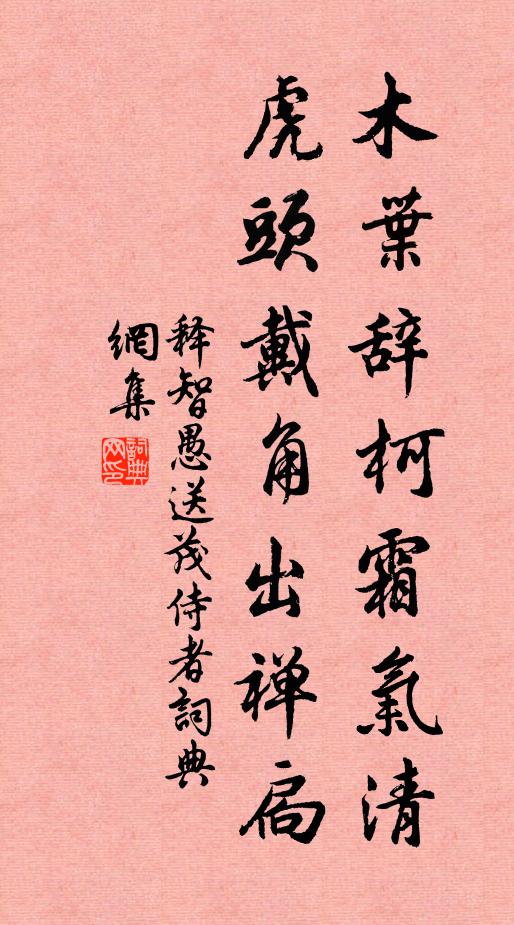 木葉辞柯霜氣清
虎頭戴角出禅扃
释智愚送茂侍者詞典
網集
詞典網印